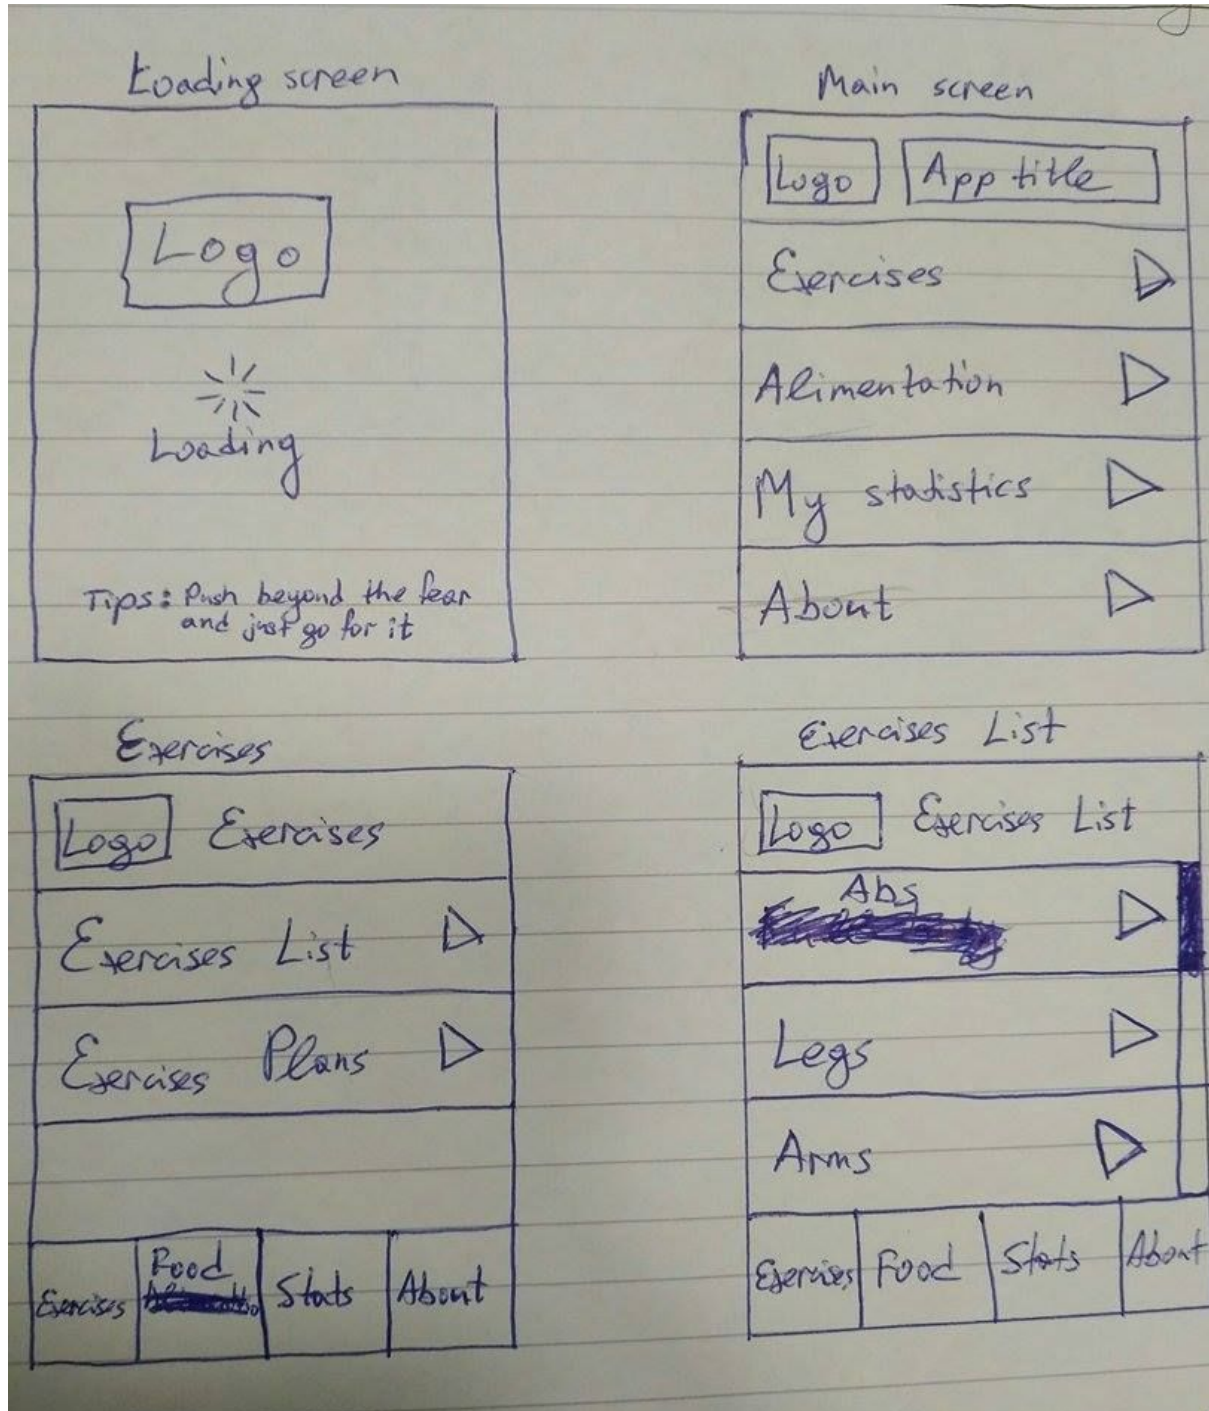 Loading screen
Logo
Loading
Tips: Push beyond the fear
and just go for it
Main screen
Logo App title
Exercises
Alimentation
My statistics
About
Exercises
Logo Exercises
Exercises List
Exercises Plans
Exercises Food Stats About
Exercises List
Logo Exercises List
Abs
Legs
Arms
Exercises Food Stats About